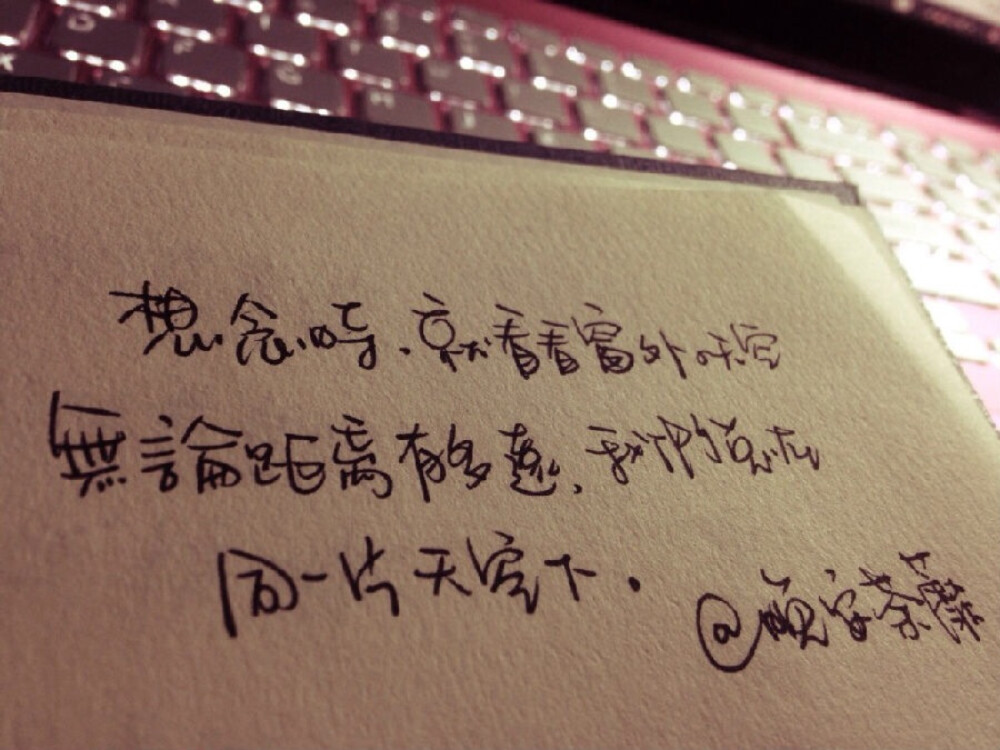 想念時，就看看窗外天空
無論距離有多遠，我們總在
同一片天空下．
@